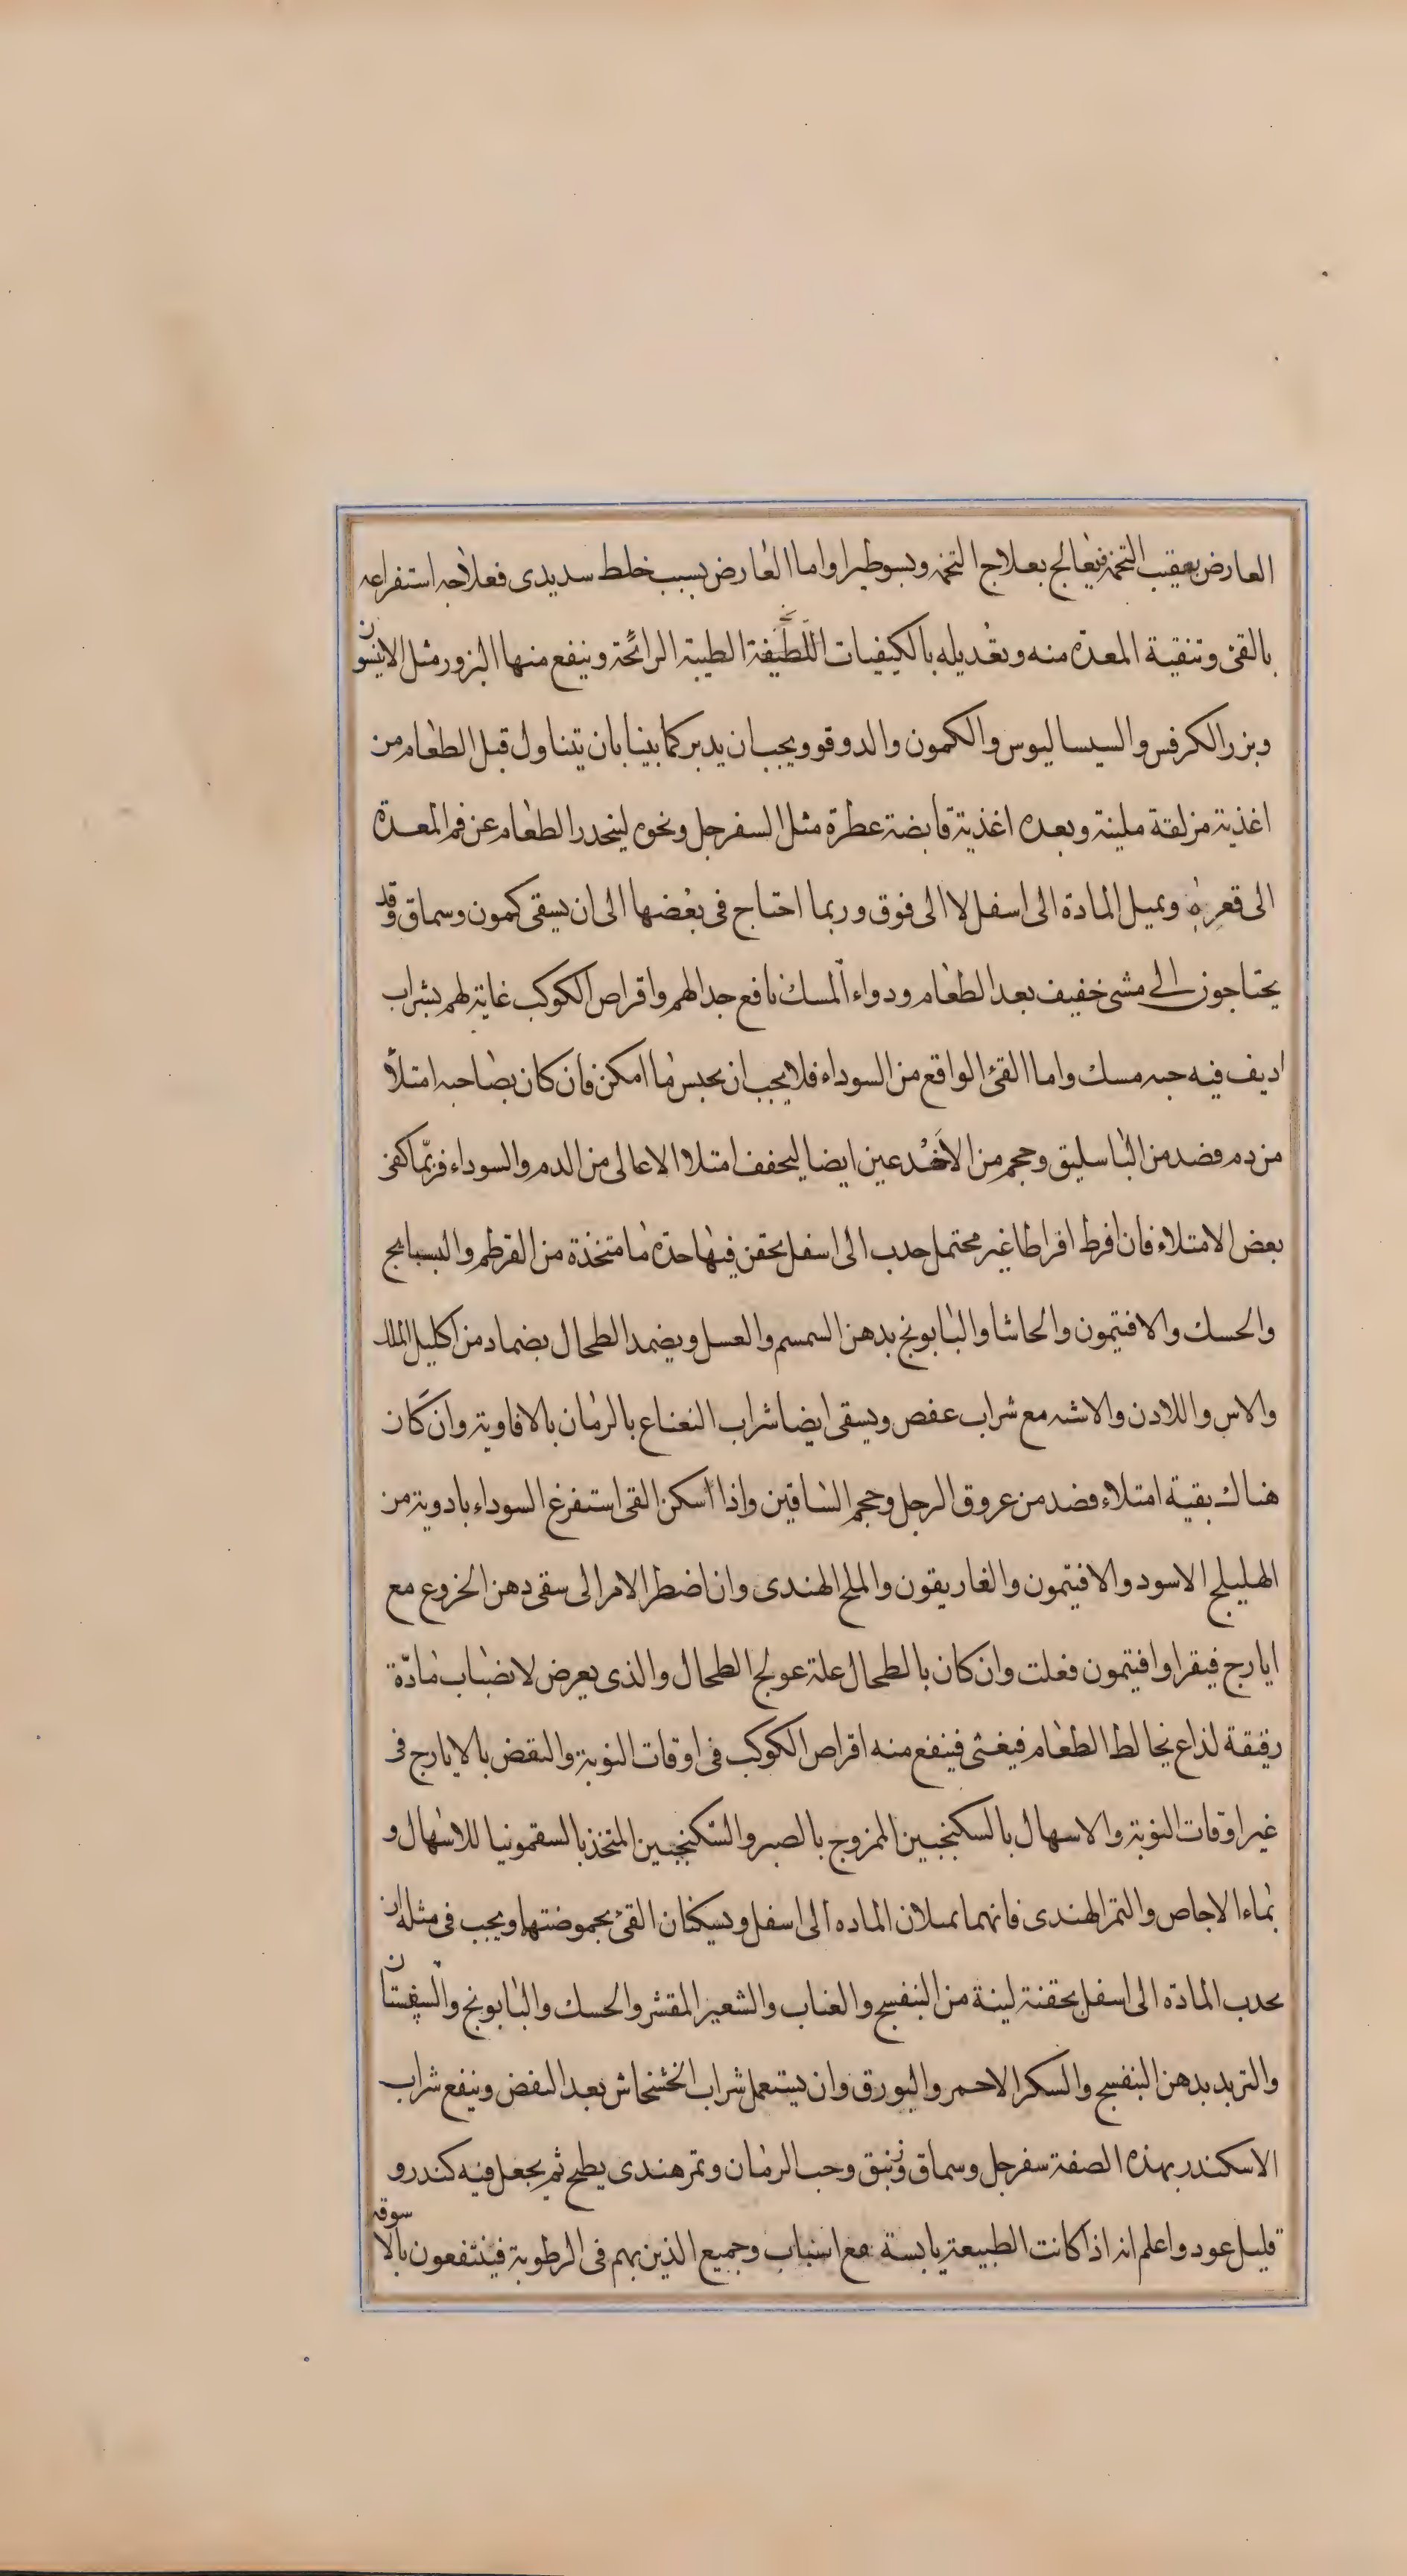 العارض بعيقب التخمة فيعالج بعلاج التخمه ويسوطيرا واما العارض بسبب خلط سديدى فعلاجه استفراغه
بالقئ وتنقية المعدة منه وتعديله بالكيفيات اللطيفة الطيبة الرائحة وينفع منها البزور مثل الانيسون
وبزر الكرفس والسيساليوس والكمون والدوقو ويجب ان يدبر كما بينا بان يتناول قبل الطعام من
اغذية مزلقة ملينة وبعده اغذية قابضة عطرة مثل السفرجل ونحوه لينحدر الطعام عن فم المعدة
الى قعره ويميل المادة الى اسفل لا الى فوق وربما احتاج فى بعضها الى ان يسقى كمون وسماق وقد
يحتاجون الى مشى خفيف بعد الطعام ودواء المسك نافع جدا لهم واقراص الكوكب غاية لهم بشراب
اديف فيه حبه مسك واما القئ الواقع من السوداء فلا يجب ان يحبس ما امكن فان كان بصاحبه امتلاأ
من دم فصد من الباسليق وحجم من الاخدعين ايضا ليخفف امتلا الاعالى من الدم والسوداء فربّما كفى
بعض الامتلاء فان افرط افراطا غير محتمل جدب الى اسفل بحقن فيها حدة ما متخذة من القرطم والبسبايج
والحسك والافتيمون والحاشا والبابونج بدهن السمسم والعسل ويضمد الطحال بضماد من اكليل الملك
والاس واللادن والاشنه مع شراب عفص ويسقى ايضا شراب النعناع بالرمان بالافاوية وان كان
هناك بقية امتلاء فصد من عروق الرجل وحجم الساقين واذا اسكن القى استفرغ السوداء بادوية من
الهليلج الاسود والافيتمون والغاريقون والملح الهندى وان اضطر الامر الى سقى دهن الخروع مع
ايارج فيقرا وافيتمون فعلت وان كان بالطحال علة عولج الطحال والذى يعرض لانصباب مادّة
رقيقة لذاع يخالط الطعام فيغثى فينفع منه اقراص الكوكب فى اوقات النوبة والنفض بالايارج فى
غير اوقات النوبة والاسهال بالسكنجبين الممزوج بالصبر والسكنجبين المتخذ بالسقمونيا للاسهال و
بماء الاجاص والتمر الهندى فانهما يميلان الماده الى اسفل ويسكنان القئ بحموضتها ويجب فى مثله ان
يجدب المادة الى اسفل بحقنة لينة من البنفسج والعناب والشعير المقشر والحسك والبابونج والسپستان
والتربد بدهن البنفسج والسكر الاحمر والبورق وان يستعمل شراب الخشخاش بعد النفض وينفع شراب
الاسكندر بهذه الصفة سفرجل وسماق ونبق وحب الرمان وتمر هندى يطبخ ثم يجعل فيه كندر و
قليل عود واعلم انه اذا كانت الطبيعة يابسة مع اسباب وجميع الذين بهم فى الرطوبة فينتفعون بالاسوقه